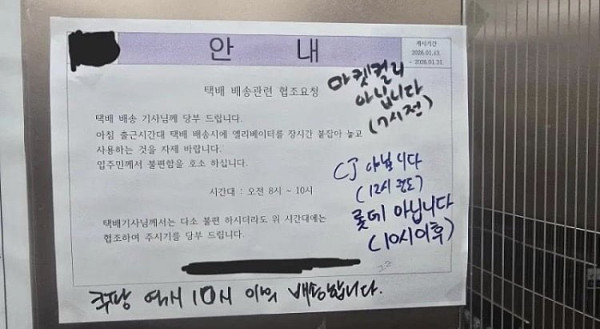 안 내
게시기간
2026.01.13
~ 2026.01.31
택배 배송관련 협조요청
택배 배송 기사님께 당부 드립니다.
아침 출근시간대 택배 배송시에 엘리베이터를 장시간 붙잡아 놓고
사용하는 것을 자제 바랍니다.
입주민께서 불편함을 호소 하십니다.
시간대 : 오전 8시 ~ 10시
택배기사님께서는 다소 불편 하시더라도 위 시간대에는
협조하여 주시기를 당부 드립니다.
마켓컬리
아닙니다
(7시전)
CJ 아닙니다
(12시 정도)
롯데 아닙니다
(10시이후)
쿠팡 역시 10시 이후 배송합니다.